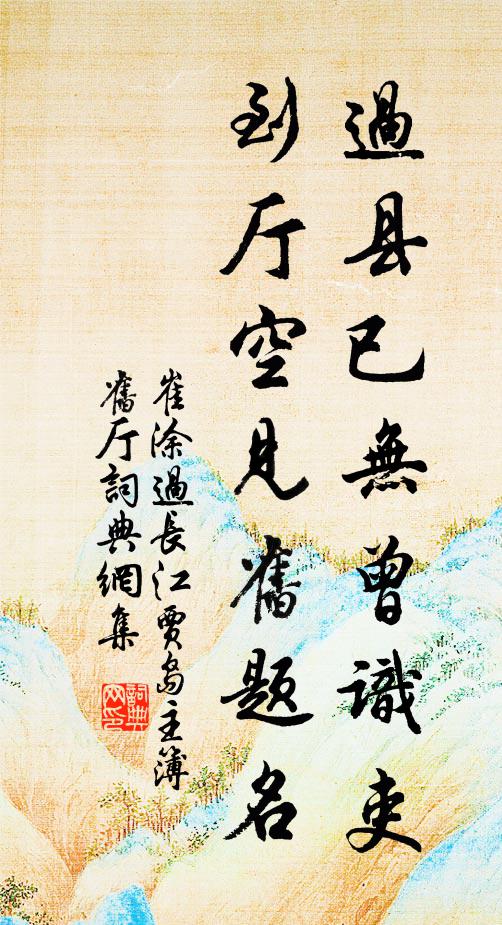 過县已無曾識吏
到厅空见舊题名
崔涂過長江賈島主簿
舊厅詞典網集
詞典網印